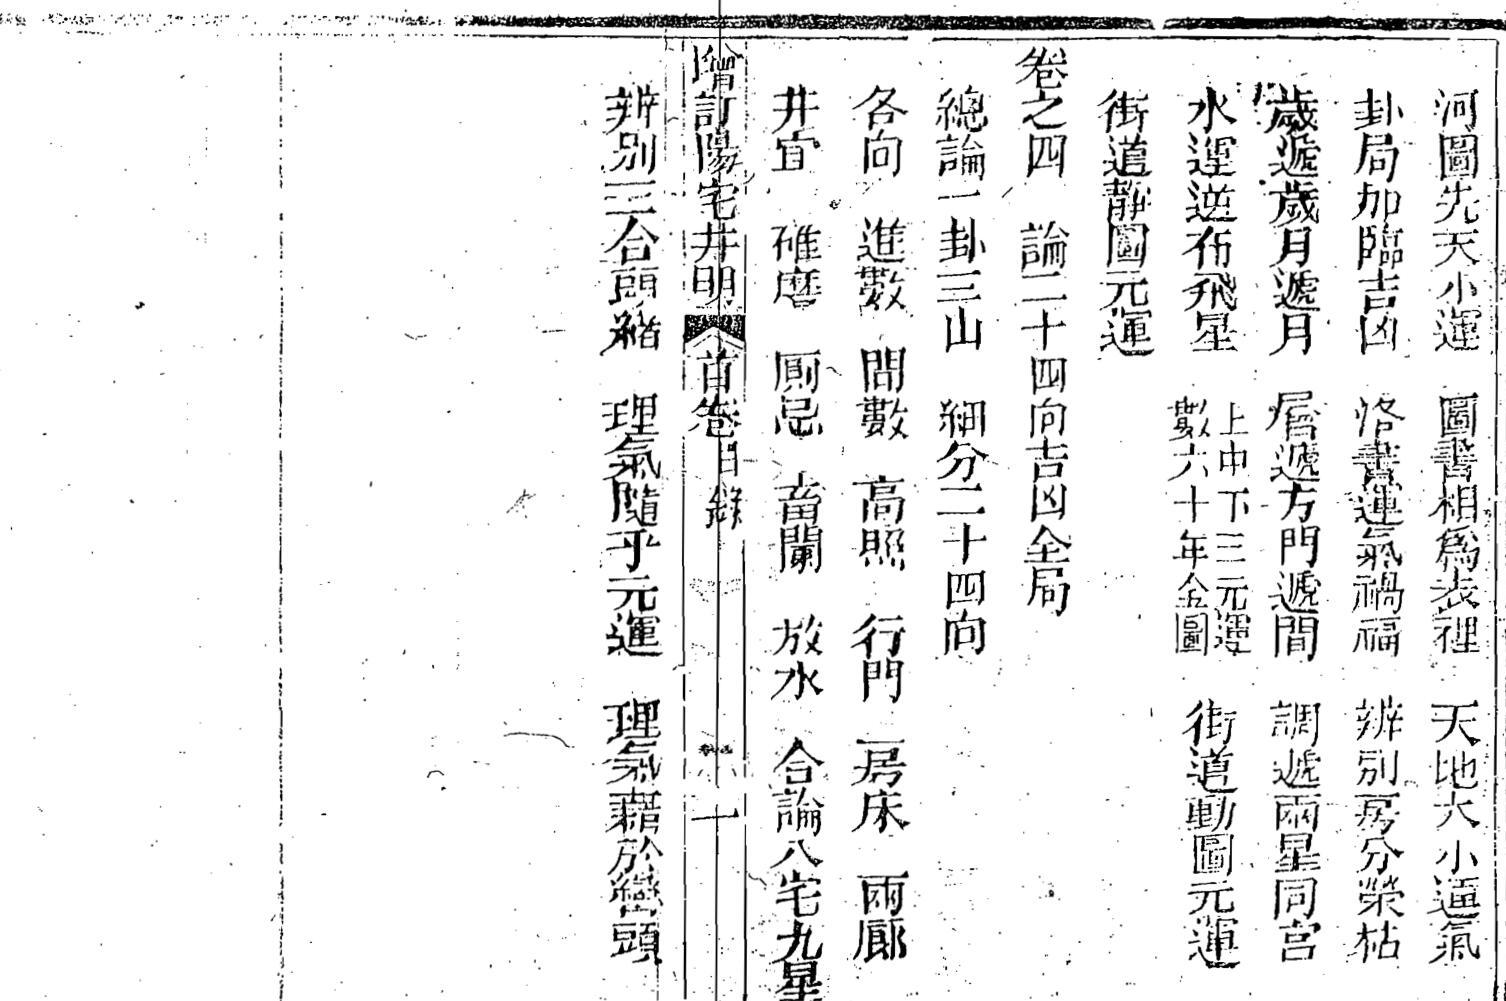 河圖先天小運　圖書相爲表裡　天地大小逼氣
卦局加臨吉凶　洛書運氣禍福　辨別房分榮枯
歲遞歲月遞月　層遞方門遞間　調遞兩星同宮
水運逆布飛星　上中下三元運數六十年全圖　街道動圖元運
街道靜圖元運
卷之四　論二十四向吉凶全局
總論一卦三山　細分二十四向
各向　進數　間數　高照　行門　房床　兩廊
井宜　碓磨　厠忌　畜闌　放水　合論八宅九星
增訂陽宅井明　首卷目錄　一
辨別三合頭緒　理氣隨乎元運　理氣藉於巒頭